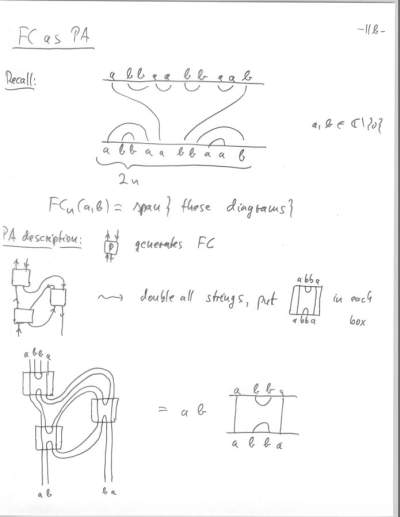 FC as PA
-116-
Recall:
a b b a a b b a a b
a, b ∈ ℂ\{0}
a b b a a b b a a b
2n
FCn(a,b) = span{ these diagrams}
PA description: P generates FC
⇝ double all strings, put in each box
a b b a
a b b a
a b b a
= a b
a b b a
a b b a
a b
b a